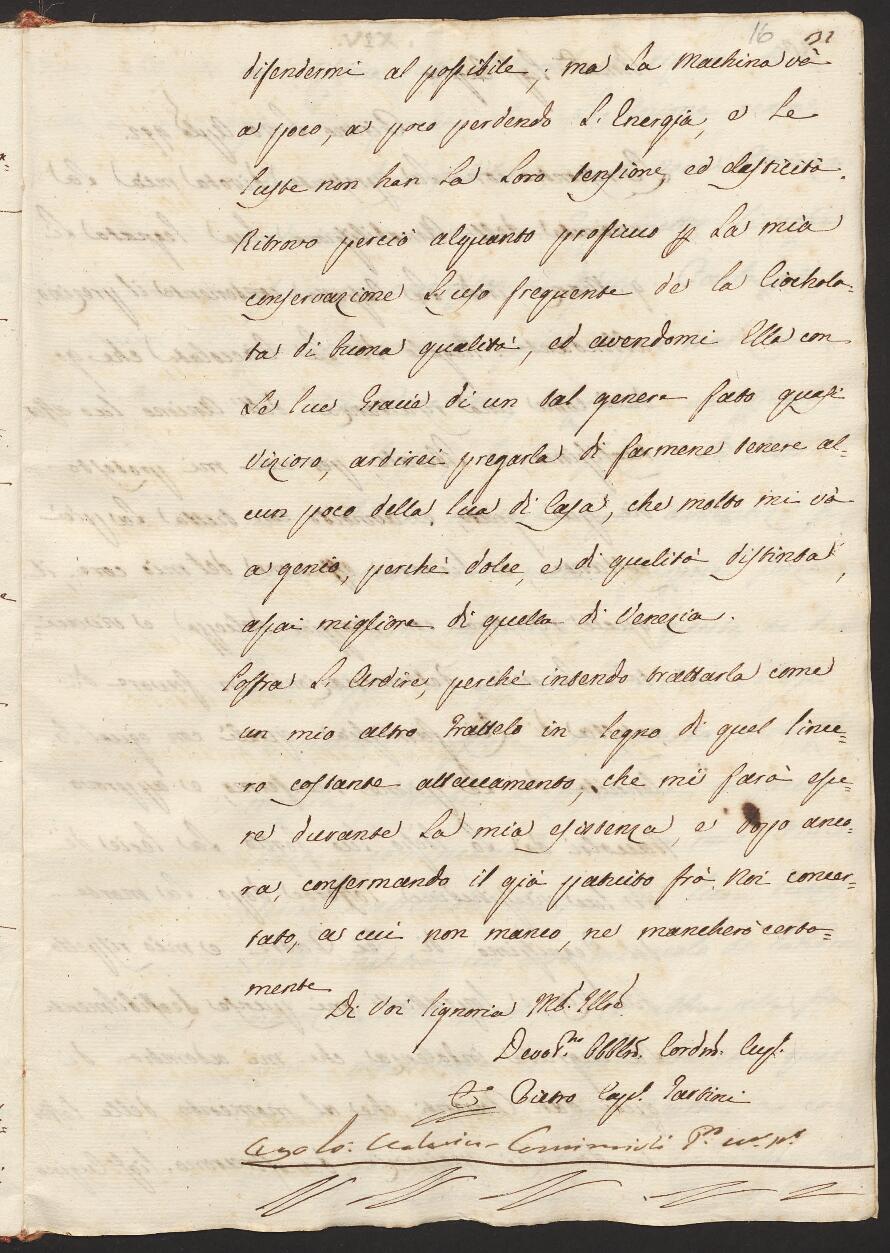 16 21
difendermi al possibile; ma La Machina và
a poco, a poco perdendo L'Energia, e Le
Juste non han La Loro tensione, ed elasticità.
Ritrovo perciò alquanto proficuo p La mia
conservazione L'uso frequente de la Ciochola-
ta di buona qualità, ed avendomi Ella con
Le Sue Grazie di un tal genere fato quasi
Vizioso, ardirei pregarla di farmene tenere al-
cun poco della Sua di Casa, che molto mi và
a genio, perchè dolce, e di qualità distinta,
assai migliore di quella di Venezia.
Sofra L'Ardire, perchè intendo trattarla come
un mio altro Frattelo in segno di quel Since-
ro costante attaccamento, che mi farà esse-
re durante La mia esistenza, e dopo anco-
ra, confermando il già pattuito frà Noi concer-
tato, a cui non manco, ne mancherò certa-
mente
Di Voi Signoria Mto. Illre.
Devomo. Obblmo. Cordmo. Cug.
Pietro Cap. Tartini